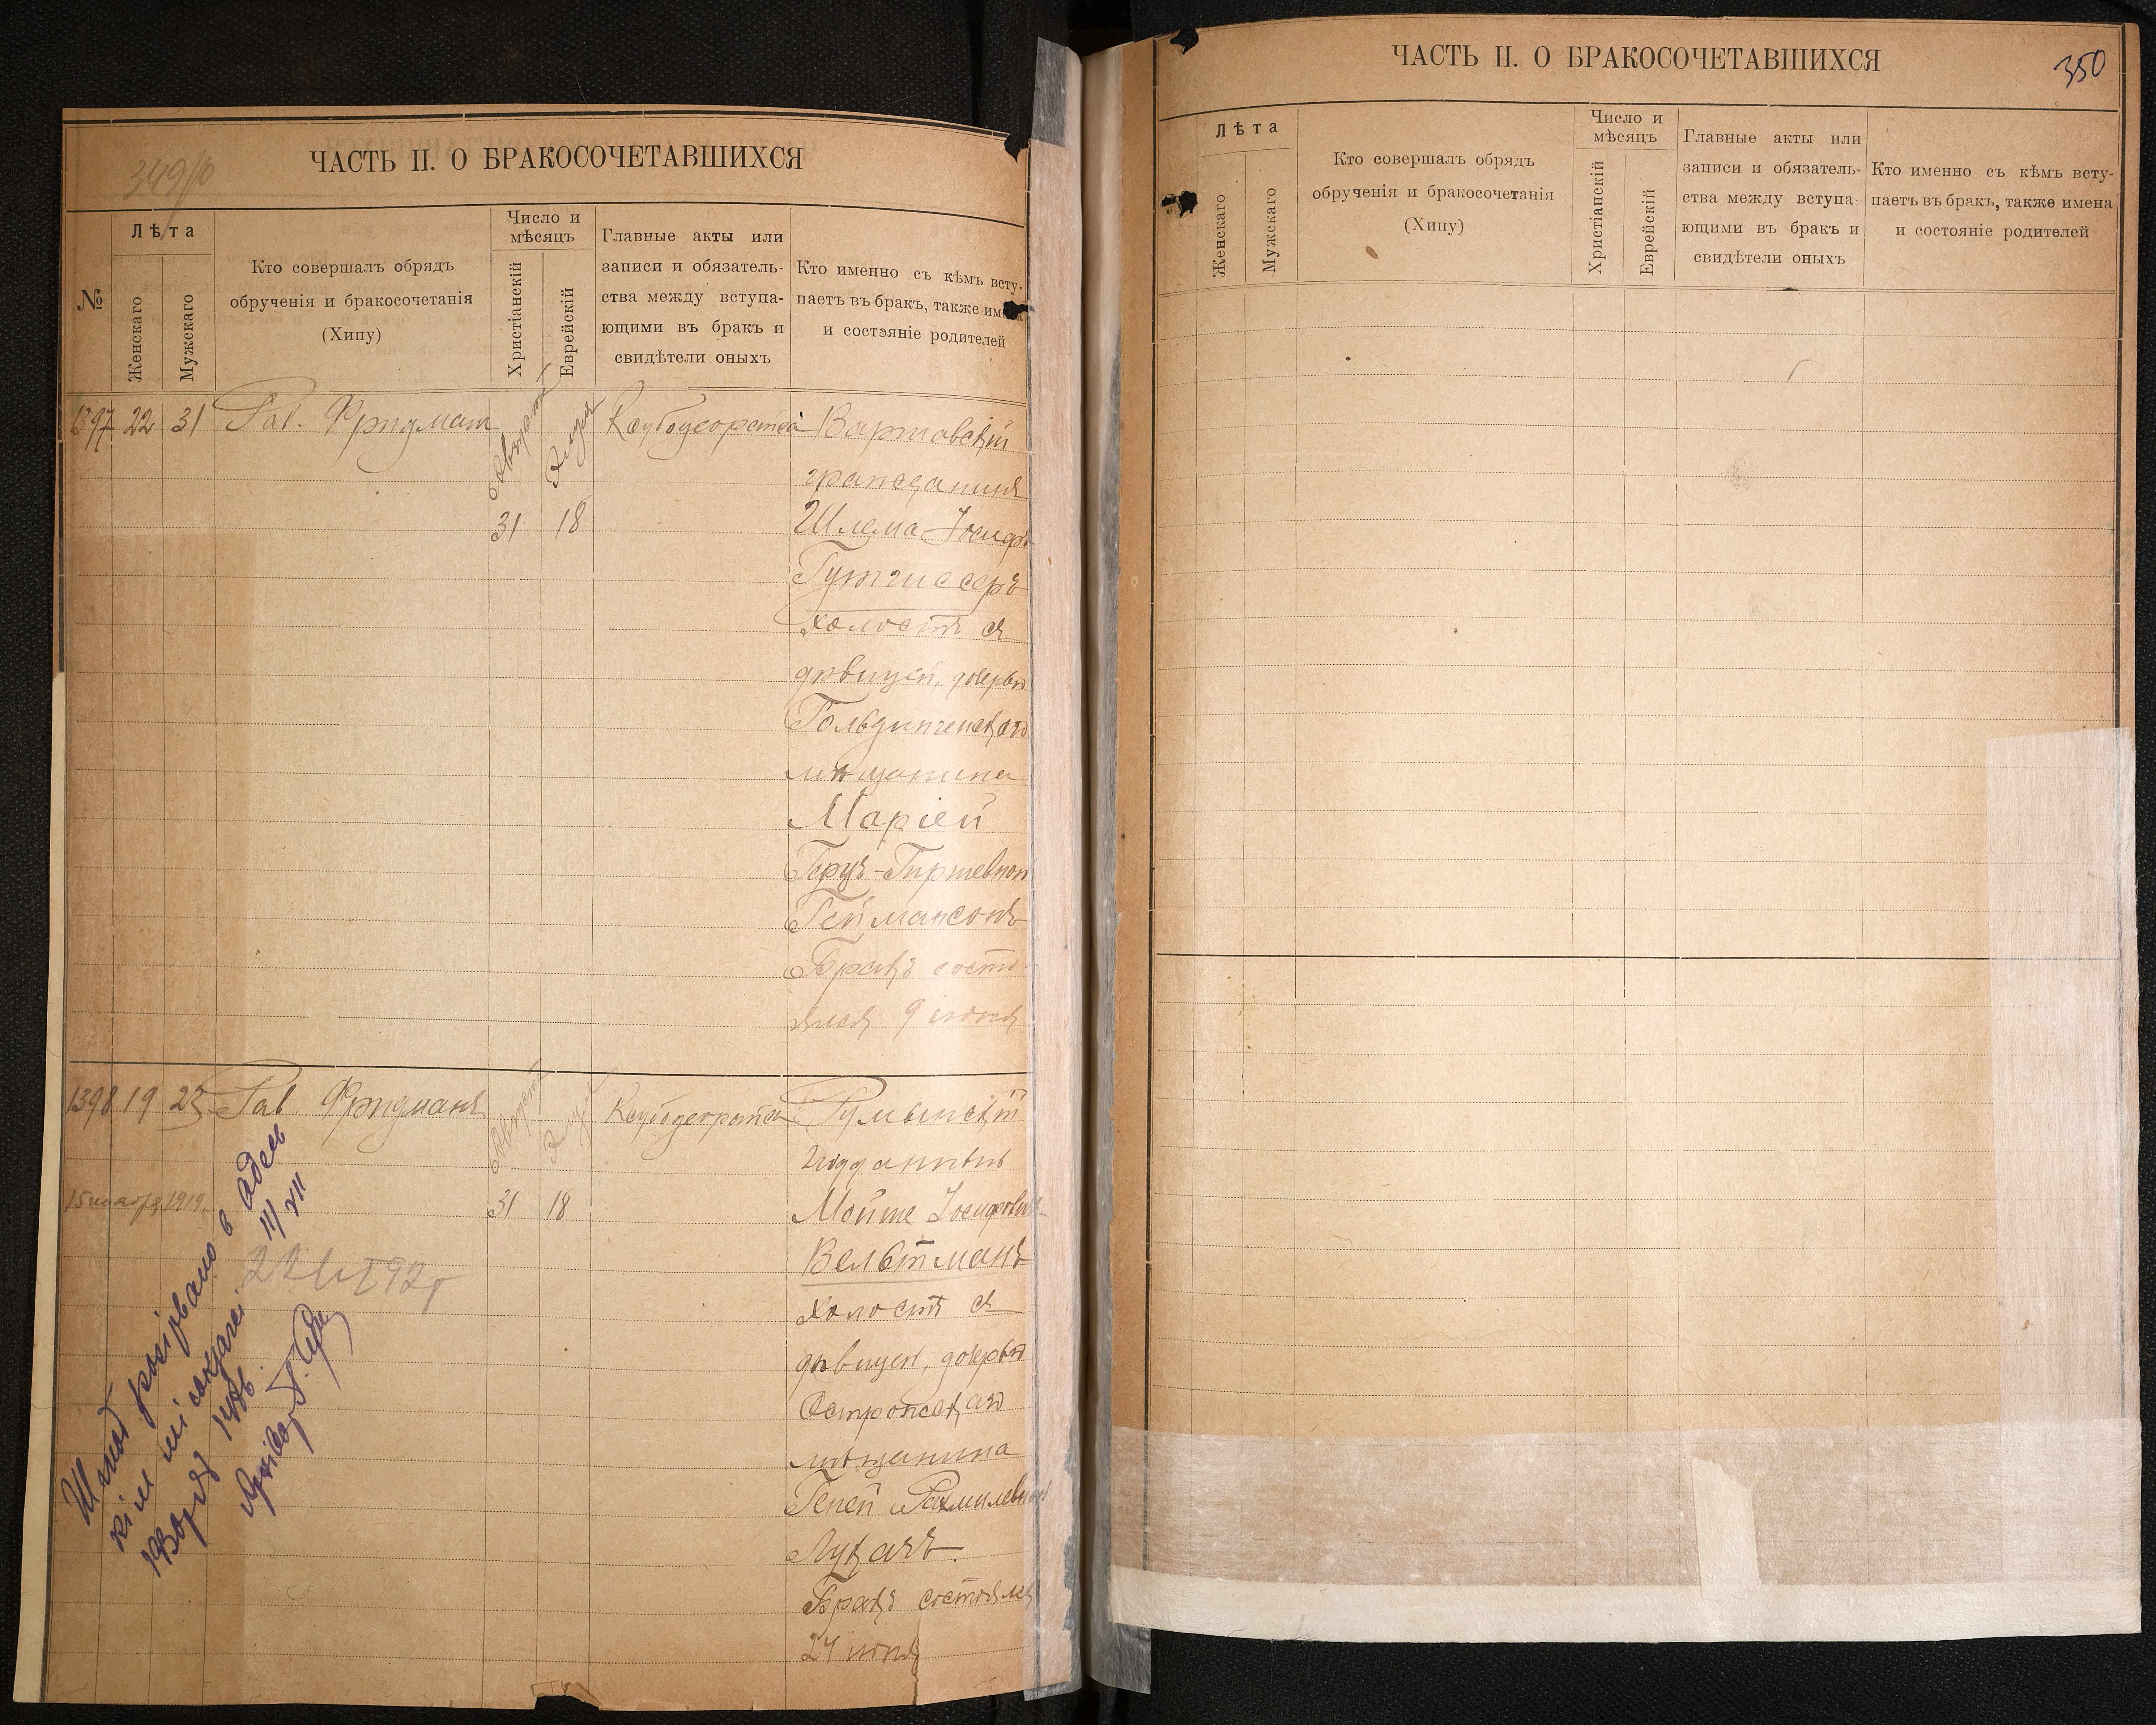 349/10
ЧАСТЬ II. О БРАКОСОЧЕТАВШИХСЯ
№
Лѣта
Женскаго
Мужскаго
Кто совершалъ обрядъ
обрученія и бракосочетанія
(Хипу)
Число и
мѣсяцъ
Христіанскій
Еврейскій
Главные акты или
записи и обязатель-
ства между вступа-
ющими въ бракъ и
свидѣтели оныхъ
Кто именно съ кѣмъ всту-
паетъ въ бракъ, также имена
и состэяніе родителей
1397 22 31 Рав. Фридман
Августъ
Элулъ
31 18
Варшавскій
гражданинъ
Шлема-Іосифъ
Гутгиссеръ
холостъ съ
дѣвицей, дочерью
Гольдингенскаго
мѣщанина
Маріей
Беръ-Гиршевной
Геймансонъ
Бракъ состо-
ялся 9 іюня
1398 19 23 Рав. Фридманъ
Августъ
Элулъ
31 18
15 ноября 1919.
Румынскій
подданный
Мойше Іосифовичъ
Вельтманъ
холостъ съ
дѣвицей, дочерью
Острожскаго
мѣщанина
Геней Рахмилевной
Лукачъ.
Бракъ состоялся
24 іюня
Шлюб розірвано в Одесь
III/VII
ЧАСТЬ II. О БРАКОСОЧЕТАВШИХСЯ
350
Лѣта
Женскаго
Мужскаго
Кто совершалъ обрядъ
обрученія и бракосочетанія
(Хипу)
Число и
мѣсяцъ
Христіанскій
Еврейскій
Главные акты или
записи и обязатель-
ства между вступа-
ющими въ бракъ и
свидѣтели оныхъ
Кто именно съ кѣмъ всту-
паетъ въ бракъ, также имена
и состояніе родителей